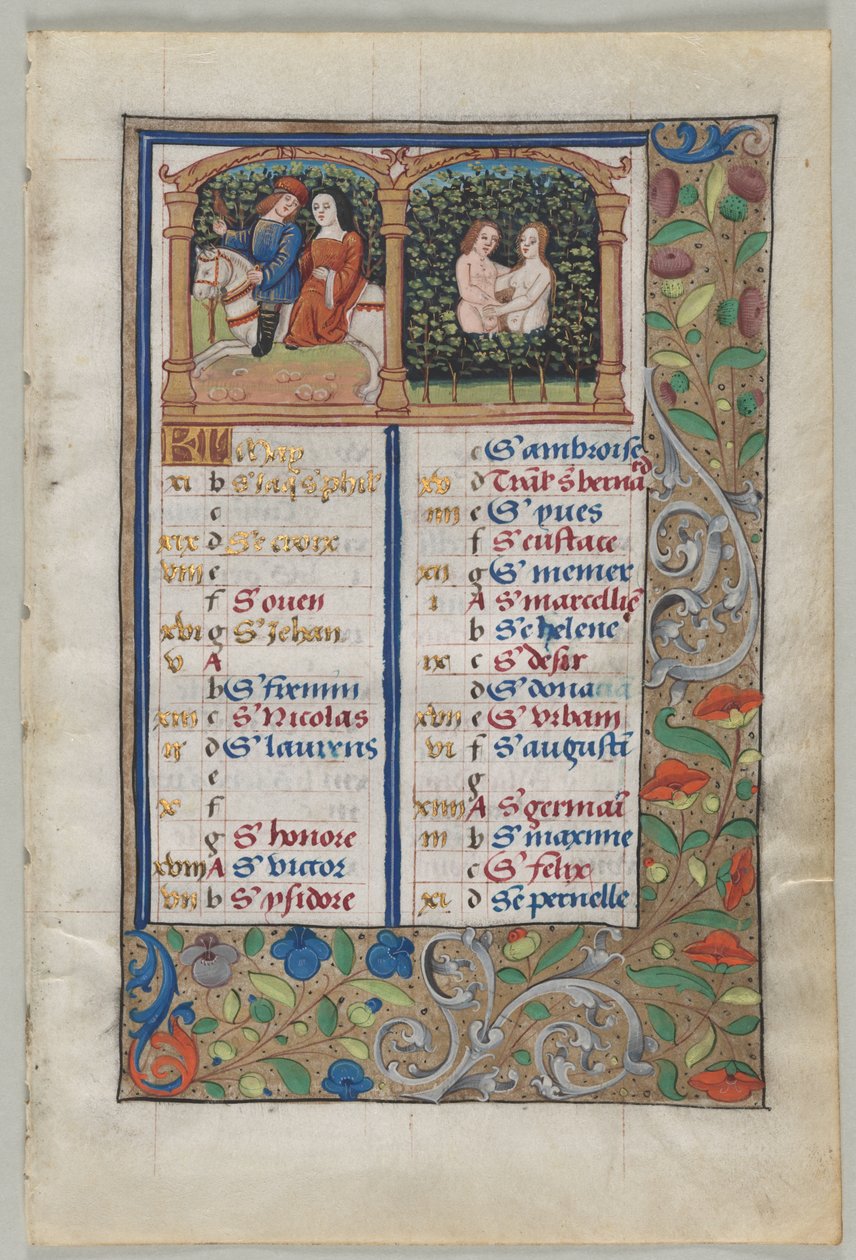 KL May
xi b Sᵗ Jaq sᵗ phil
c
xix d Sᵉ croix
viii e
f Sᵗ ouen
xvi g Sᵗ Jehan
v A
b Sᵗ firmin
xiii c Sᵗ Nicolas
ii d Sᵗ laurens
e
x f
g Sᵗ honore
xviii A Sᵗ victor
vii b Sᵗ ysidore
c Sᵗ ambroise
xv d Trāſl s bernard
iiii e Sᵗ yues
f Sᵗ eustace
xii g Sᵗ
i A Sᵗ marcelliē
b Sᵉ helene
ix c Sᵗ desir
d Sᵗ donaciā
xvii e Sᵗ vrbain
vi f Sᵗ augustī
g
xiiii A Sᵗ germaī
iii b Sᵗ maxime
c Sᵗ felix
xi d Sᵉ pernelle